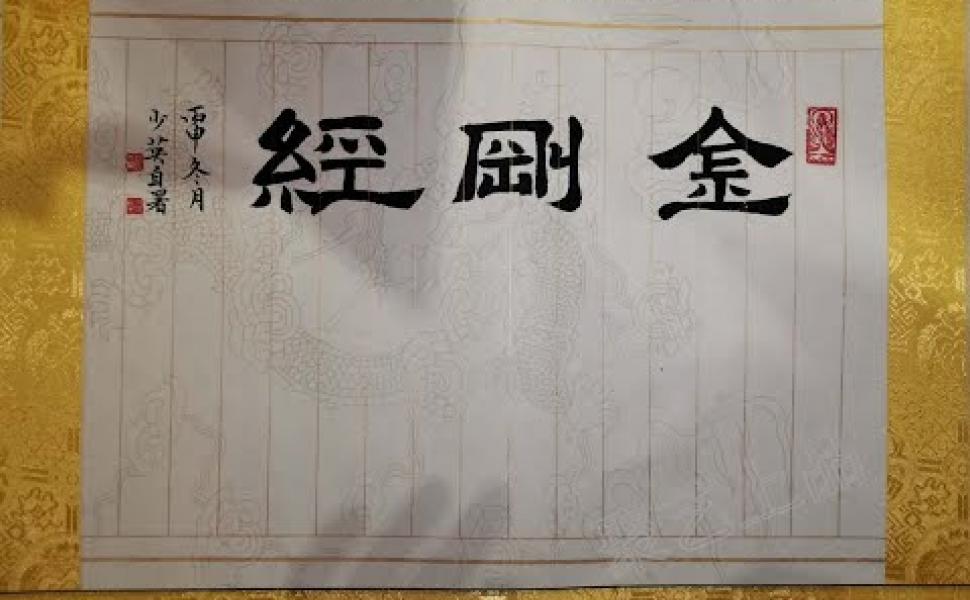 金剛經
丙申冬月
少英自署